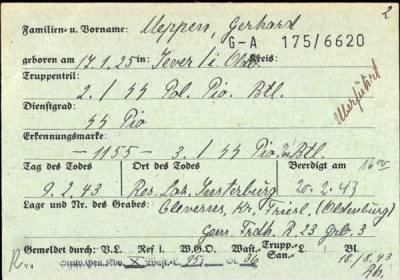 2
Familien- u. Vorname: Meppen, Gerhard
G-A 175/6620
geboren am 17.1.25 in: Jever / i Old. Kreis:
Truppenteil:
2. / SS Pol. Pio. Btl.
Dienstgrad:
SS Pio
Erkennungsmarke:
-1155- 3. / SS Pio. Btl.
Tag des Todes Ort des Todes Beerdigt am 16 00
9.2.43 Res. Laz. Insterburg 20.2.43
Lage und Nr. des Grabes: Cleverns, Kr. Friesl. (Oldenburg)
Gem. Frdh. R. 23 Grb. 3
Gemeldet durch: V.L. Ref i. W.G. Wast.- Trupp.- Bl. 18/8.43
San.
X Wast. L. 951 Bl. 36